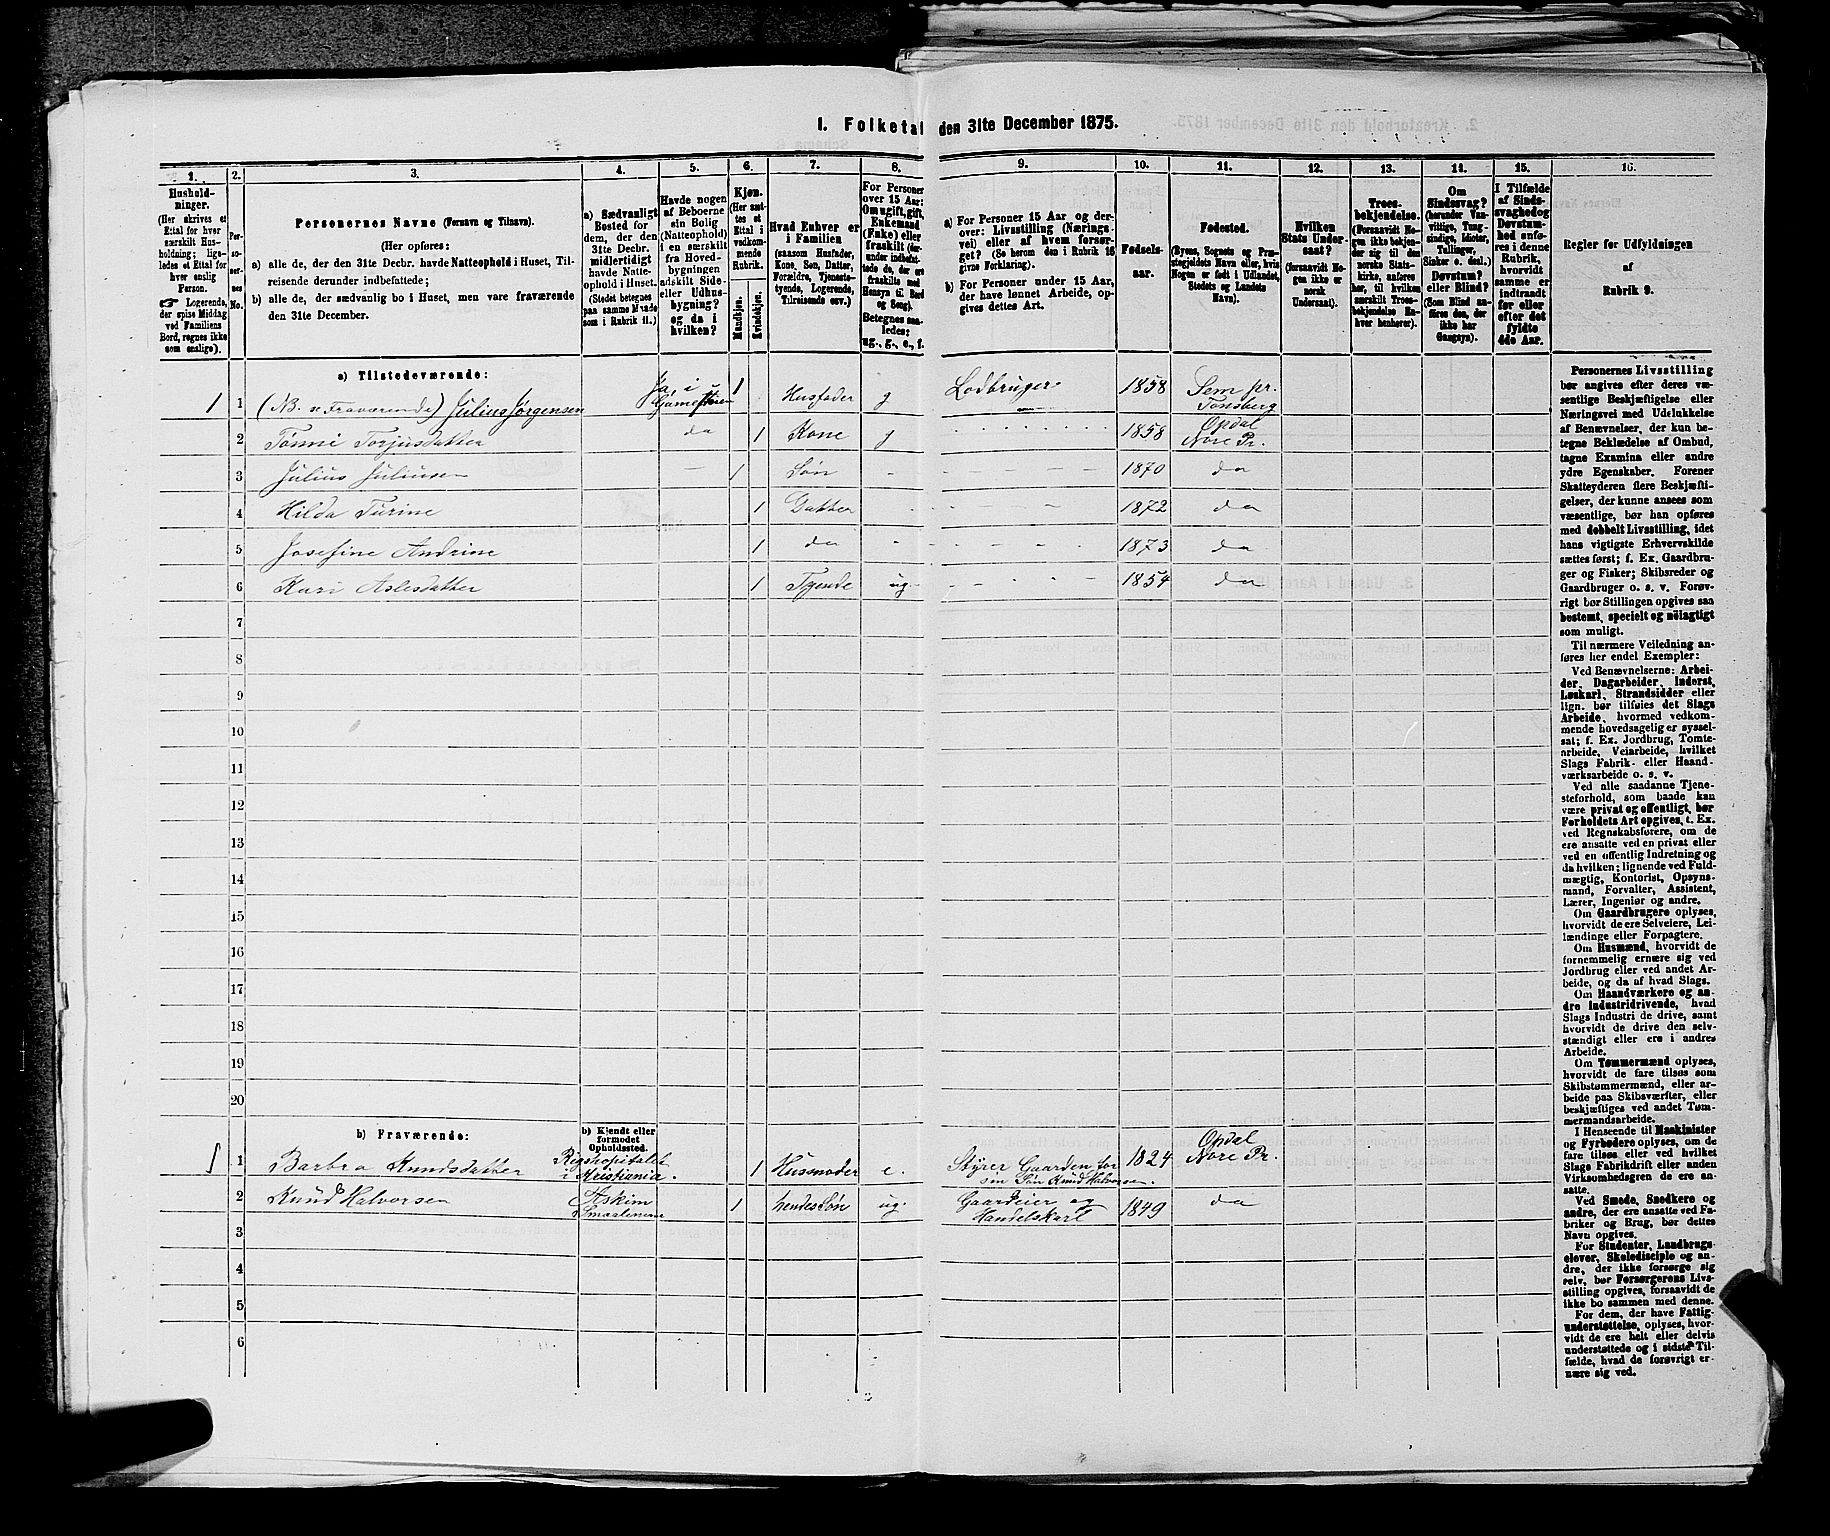 1. Folketal den 31te December 1875.
1.
Hushold-
ninger.
(Her skrives et
Ettal for hver
særskilt Hus-
holdning; lige-
ledes et Ettal for
hver enslig
Person.
☛ Logerende,
der spise Middag
ved Familiens
Bord, regnes ikke
som enslige).
2.
Per-
soner-
nes
No.
3.
Personernes Navne (Fornavn og Tilnavn).
(Her opføres:
a) alle de, der den 31te Decbr. havde Natteophold i Huset, Til-
reisende derunder indbefattede;
b) alle de, der sædvanlig bo i Huset, men vare fraværende
den 31te December.
4.
a) Sædvanligt
Bosted for
dem, der den
31te Decbr.
midlertidigt
havde Natte-
ophold i Huset.
(Stedet betegnes
paa samme Maade
som i Rubrik 11.)
5.
Havde nogen
af Beboerne
sin Bolig
(Natteophold)
i en særskilt
fra Hoved-
bygningen
adskilt Side-
eller Udhus-
bygning?
og da i
hvilken?
6.
Kjøn.
(Her sæt-
tes et
Ettal i
vedkom-
mende
Rubrik.
Mandkjøn.
Kvindekjøn.
7.
Hvad Enhver er
i Familien
(saasom Husfader,
Kone, Søn, Datter,
Forældre, Tjeneste-
tyende, Logerende,
Tilreisende osv.)
8.
For Personer
over 15 Aar:
Om ugift, gift,
Enkemand
(Enke) eller
fraskilt (der-
under indbefat-
tede de, der ere
fraskilte med
Hensyn til Bord
og Seng).
Betegnes saa-
ledes:
ug., g., e., f.
9.
a) For Personer 15 Aar og der-
over: Livsstilling (Nærings-
vei) eller af hvem forsør-
get? (Se herom den i Rubrik 16
givne Forklaring).
b) For Personer under 15 Aar,
der have lønnet Arbeide, op-
gives dettes Art.
10.
Fødsels-
aar.
11.
Fødested.
(Byens, Sognets og Præ-
stegjeldets Navn eller, hvis
Nogen er født i Udlandet,
Stedets og Landets
Navn).
12.
Hvilken
Stats Under-
saat?
(forsaavidt No-
gen ikke er
norsk
Undersaat).
13.
Troes-
bekjendelse.
(Forsaavidt No-
gen ikke bekjen-
der sig til den
norske Stats-
kirke, anføres
her, til hvilken
særskilt Troes-
bekjendelse En-
hver henhører).
14.
Om
Sindssvag?
(herunder Van-
vittige, Tung-
sindige, Idioter,
Tullinger,
Sinker o. desl.)
Døvstum?
eller Blind?
(Som Blind an-
føres den, der
ikke har
Gangsyn).
15.
I Tilfælde
af Sinds-
svaghed og
Døvstum-
hed anfø-
res i denne
Rubrik,
hvorvidt
samme er
indtraadt
før eller
efter det
fyldte
4de Aar.
16.
Regler for Udfyldningen
af
Rubrik 9.
a) Tilstedeværende:
1 1 (NB. se Fraværende) Julius Jørgensen Ja, i 1 Husfader g Lodbruger 1858 Sem pr. Tønsberg
2 Tonni Torjusdatter da 1 Kone g 1858 Opdal Nore Pr.
3 Julius Juliusen — 1 Søn 1870 da
4 Hilda Turine 1 Datter 1872 da
5 Josefine Andrine 1 da 1873 da
6 Kari Aslesdatter 1 Tyende ug 1854 da
7
8
9
10
11
12
13
14
15
16
17
18
19
20
b) Fraværende:
b) Kjendt eller
formodet
Opholdssted.
1 1 Barbra Knudsdatter Rigshospitalet i Kristiania. 1 Husmoder e. Styrer Gaarden for sin Søn Knud Halvorsen. 1824 Opdal Nore Pr.
2 Knud Halvorsen Askim Smaalenene 1 hendes Søn ug. Gaardeier og Handelskarl 1849 da
3
4
5
6
Personernes Livsstilling
bør angives efter deres væ-
sentlige Beskjæftigelse eller
Næringsvei med Udelukkelse
af Benævnelser, der kun be-
tegne Beklædelse af Ombud,
tagne Examina eller andre
ydre Egenskaber. Forener
Skatteyderen flere Beskjæfti-
gelser, der kunne ansees som
væsentlige, bør han opføres
med dobbelt Livsstilling, idet
hans vigtigste Erhvervskilde
sættes først; f. Ex. Gaardbru-
ger og Fisker; Skibsreder og
Gaardbruger o. s. v. Forøv-
rigt bør Stillingen opgives saa
bestemt, specielt og nøiagtigt
som muligt.
Til nærmere Veiledning an-
føres her endel Exempler:
Ved Benævnelserne: Arbei-
der, Dagarbeider, Inderst,
Løskarl, Strandsidder eller
lign. bør tilføies det Slags
Arbeide, hvormed vedkom-
mende hovedsagelig er syssel-
sat; f. Ex. Jordbrug, Tomte-
arbeide, Veiarbeide, hvilket
Slags Fabrik- eller Haand-
værksarbeide o. s. v.
Ved alle saadanne Tjene-
steforhold, som baade kan
være privat og offentligt, bør
Forholdets Art opgives, t. Ex.
ved Regnskabsførere, om de
ere ansatte ved en privat eller
ved en offentlig Indretning og
da hvilken; lignende ved Fuld-
mægtig, Kontorist, Opsyns-
mand, Forvalter, Assistent,
Lærer, Ingeniør og andre.
Om Gaardbrugere oplyses,
hvorvidt de ere Selveiere, Lei-
lændinge eller Forpagtere.
Om Husmænd, hvorvidt de
fornemmelig ernære sig ved
Jordbrug eller ved andet Ar-
beide, og da af hvad Slags.
Om Haandværkere og an-
dre Industridrivende, hvad
Slags Industri de drive, samt
hvorvidt de drive den selv-
stændigt eller ere i andres
Arbeide.
Om Tømmermænd oplyses,
hvorvidt de fare tilsøs som
Skibstømmermænd, eller ar-
beide paa Skibsværfter, eller
beskjæftiges ved andet Tøm-
mermandsarbeide.
I Henseende til Maskinister
og Fyrbødere oplyses, om de
fare tilsøs eller ved hvilket
Slags Fabrikdrift eller anden
Virksomhedsgren de ere an-
satte.
Ved Smede, Snedkere og
andre, der ere ansatte ved Fa-
briker og Brug, bør dettes
Navn opgives.
For Studenter, Landbrugs-
elever, Skoledisciple og an-
dre, der ikke forsørge sig
selv, bør Forsørgerens Livs-
stilling opgives, forsaavidt de
ikke bo sammen med denne.
For dem, der have Fattig-
understøttelse, oplyses, hvor-
vidt de ere helt eller delvis
understøttede og i sidste Til-
fælde, hvad de forøvrigt er-
nære sig ved.